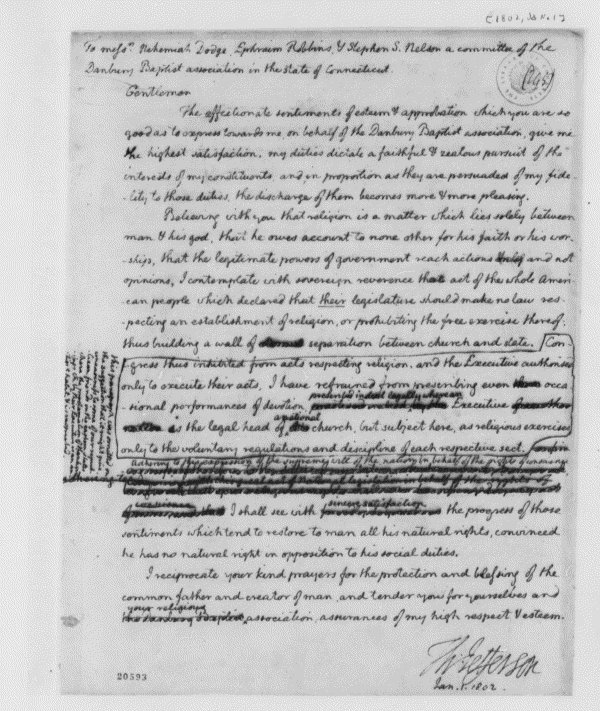 [1802, Jan. 1]
To messrs. Nehemiah Dodge, Ephraim Robbins, & Stephen S. Nelson a committee of the
Danbury Baptist association in the state of Connecticut.
Gentlemen
The affectionate sentiments of esteem & approbation which you are so
good as to express towards me on behalf of the Danbury Baptist association, give me
the highest satisfaction. my duties dictate a faithful & zealous pursuit of the
interests of my constituents, and in proportion as they are persuaded of my fide-
-lity to those duties, the discharge of them becomes more & more pleasing.
Believing with you that religion is a matter which lies solely between
man & his god, that he owes account to none other for his faith or his wor-
-ship, that the legitimate powers of government reach actions only and not
opinions, I contemplate with sovereign reverence that act of the whole Ameri-
-can people which declared that their legislature should make no law res-
-pecting an establishment of religion, or prohibiting the free exercise thereof;
thus building a wall of separation between church and state. [Con-
-gress thus inhibited from acts respecting religion, and the Executive authorised
only to execute their acts, I have refrained from prescribing even occa-
-sional performances of devotion,
prescribed indeed legally where an
Executive
is the legal head of
a national
church, but subject here, as religious exercises
only to the voluntary regulations and discipline of each respective sect.
adhering to this expression of the supreme will of the nation in behalf of the rights of conscience
I shall see with
sincere satisfaction
the progress of those
sentiments which tend to restore to man all his natural rights, convinced
he has no natural right in opposition to his social duties.
I reciprocate your kind prayers for the protection and blessing of the
common father and creator of man, and tender you for yourselves and
your religious
the Danbury Baptist association, assurances of my high respect & esteem.
Th Jefferson
Jan. 1. 1802.
20593